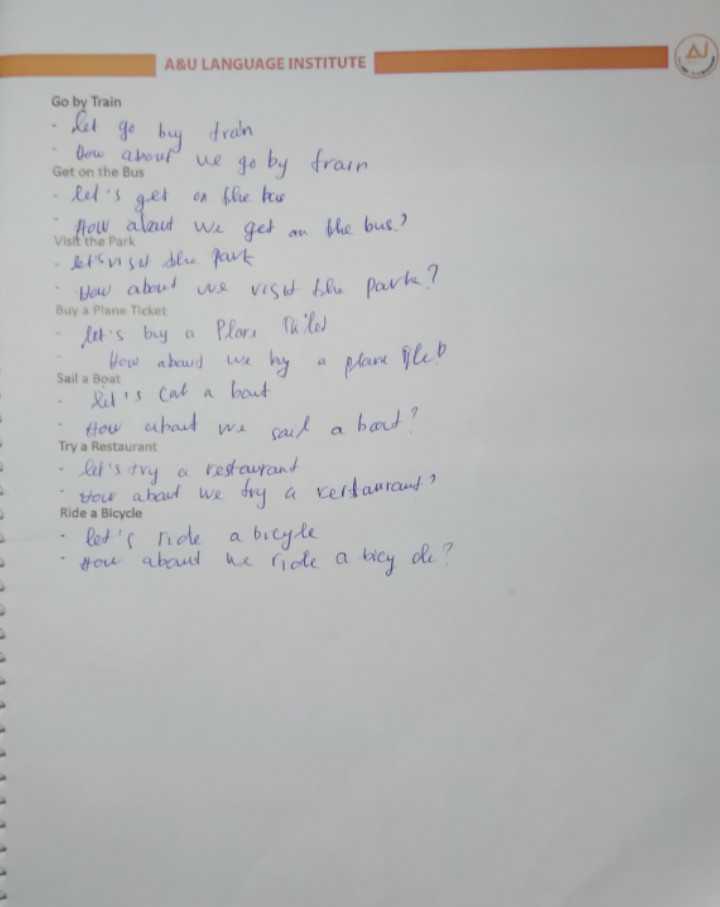 A&U LANGUAGE INSTITUTE
Go by Train
- let go buy train
- How about we go by train
Get on the Bus
- let's get on the bus
- How about we get on the bus?
Visit the Park
- let's visit the park
- How about we visit the park?
Buy a Plane Ticket
- let's buy a Plane
- How about we by a plane
Sail a Boat
- let's a boat
- How about we sail a boat?
Try a Restaurant
- let's try a restaurant
- How about we try a restaurant?
Ride a Bicycle
- let's ride a bicyle
- How about we ride a bicy cle?